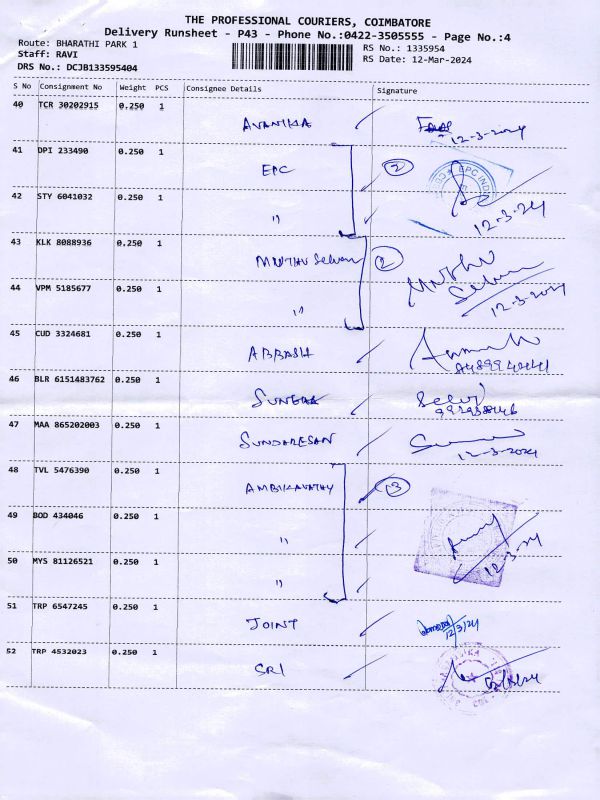 THE PROFESSIONAL COURIERS, COIMBATORE
Delivery Runsheet - P43 - Phone No.:0422-3505555 - Page No.:4
Route: BHARATHI PARK 1 RS No.: 1335954
Staff: RAVI RS Date: 12-Mar-2024
DRS No.: DCJB133595404
S No Consignment No Weight PCS Consignee Details Signature
40 TCR 30202915 0.250 1
AVANIKA 12-3-2024
41 DPI 233490 0.250 1
EPC 2 EPC IND
42 STY 6041032 0.250 1
" 12-3-24
43 KLK 8088936 0.250 1
MUTHU Selvan 2 Muthu
44 VPM 5185677 0.250 1
" 12-3-2024
45 CUD 3324681 0.250 1
ABBASH
46 BLR 6151483762 0.250 1
Selvi
47 MAA 865202003 0.250 1
SUNDARESAN 12-3-2024
48 TVL 5476390 0.250 1
3
49 BOD 434046 0.250 1
"
50 MYS 81126521 0.250 1
" 12-3-24
51 TRP 6547245 0.250 1
JOINT 12/3/24
52 TRP 4532023 0.250 1
SRI